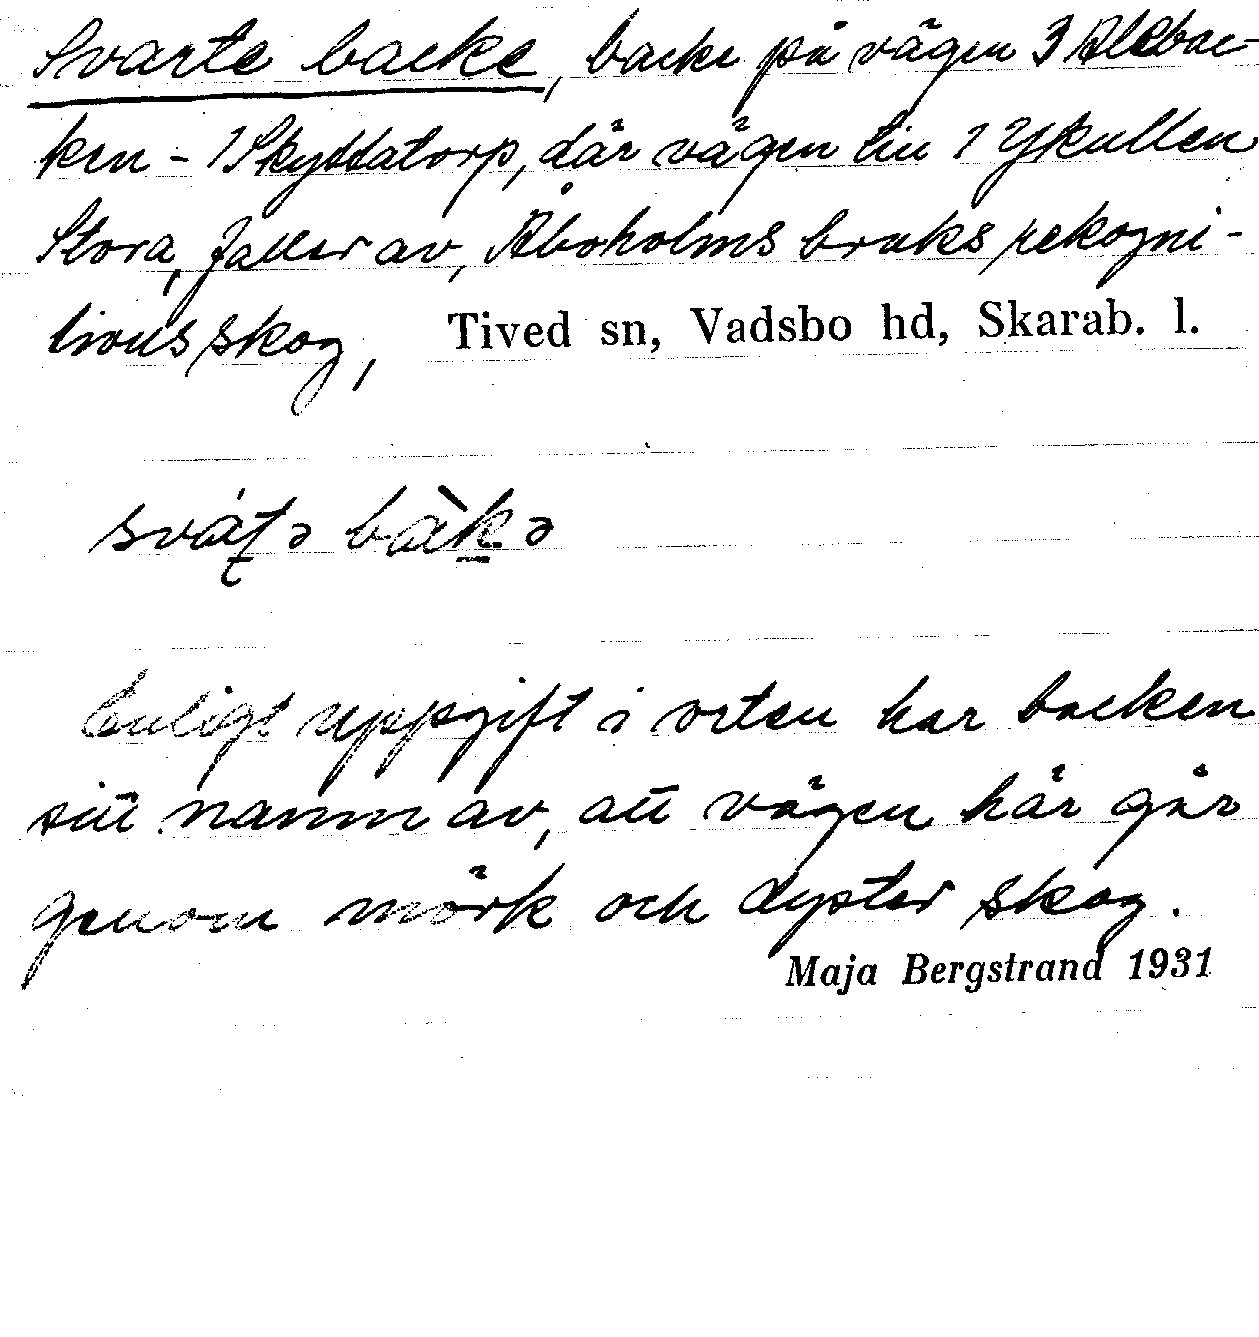 Svarte backe, backe på vägen 3 Alebac-
ken - 1 Skyttatorp, där vägen till 1 Ykullen
Stora, faller av, Åboholms bruks rekogni-
tionsskog, Tived sn, Vadsbo hd, Skarab. l.
sváʈə bàkə
Enligt uppgift i orten har backen
sitt namn av, att vägen här går
genom mörk och dyster skog.
Maja Bergstrand 1931